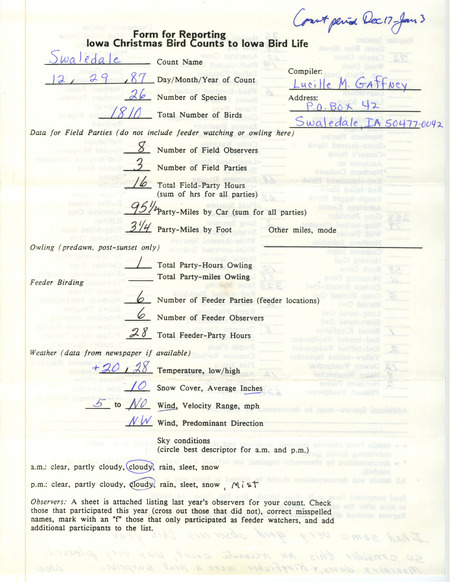 Count period Dec 17-Jan 3
Form for Reporting
Iowa Christmas Bird Counts to Iowa Bird Life
Swaledale Count Name
12, 29, 87 Day/Month/Year of Count
26 Number of Species
1810 Total Number of Birds
Compiler:
Lucille M. Gaffney
Address:
P.O. Box 42
Swaledale, IA 50477-0042
Data for Field Parties (do not include feeder watching or owling here)
8 Number of Field Observers
3 Number of Field Parties
16 Total Field-Party Hours
(sum of hrs for all parties)
95 1/2 Party-Miles by Car (sum for all parties)
3 1/4 Party-Miles by Foot Other miles, mode
Owling (predawn, post-sunset only)
1 Total Party-Hours Owling
Total Party-miles Owling
Feeder Birding
6 Number of Feeder Parties (feeder locations)
6 Number of Feeder Observers
28 Total Feeder-Party Hours
Weather (data from newspaper if available)
+20, 28 Temperature, low/high
10 Snow Cover, Average Inches
5 to NO Wind, Velocity Range, mph
NW Wind, Predominant Direction
Sky conditions
(circle best descriptor for a.m. and p.m.)
a.m.: clear, partly cloudy, cloudy, rain, sleet, snow
p.m.: clear, partly cloudy, cloudy, rain, sleet, snow, mist
Observers: A sheet is attached listing last year's observers for your count. Check
those that participated this year (cross outs those that did not), correct misspelled
names, mark with an "f" those that only participated as feeder watchers, and add
additional participants to the list.